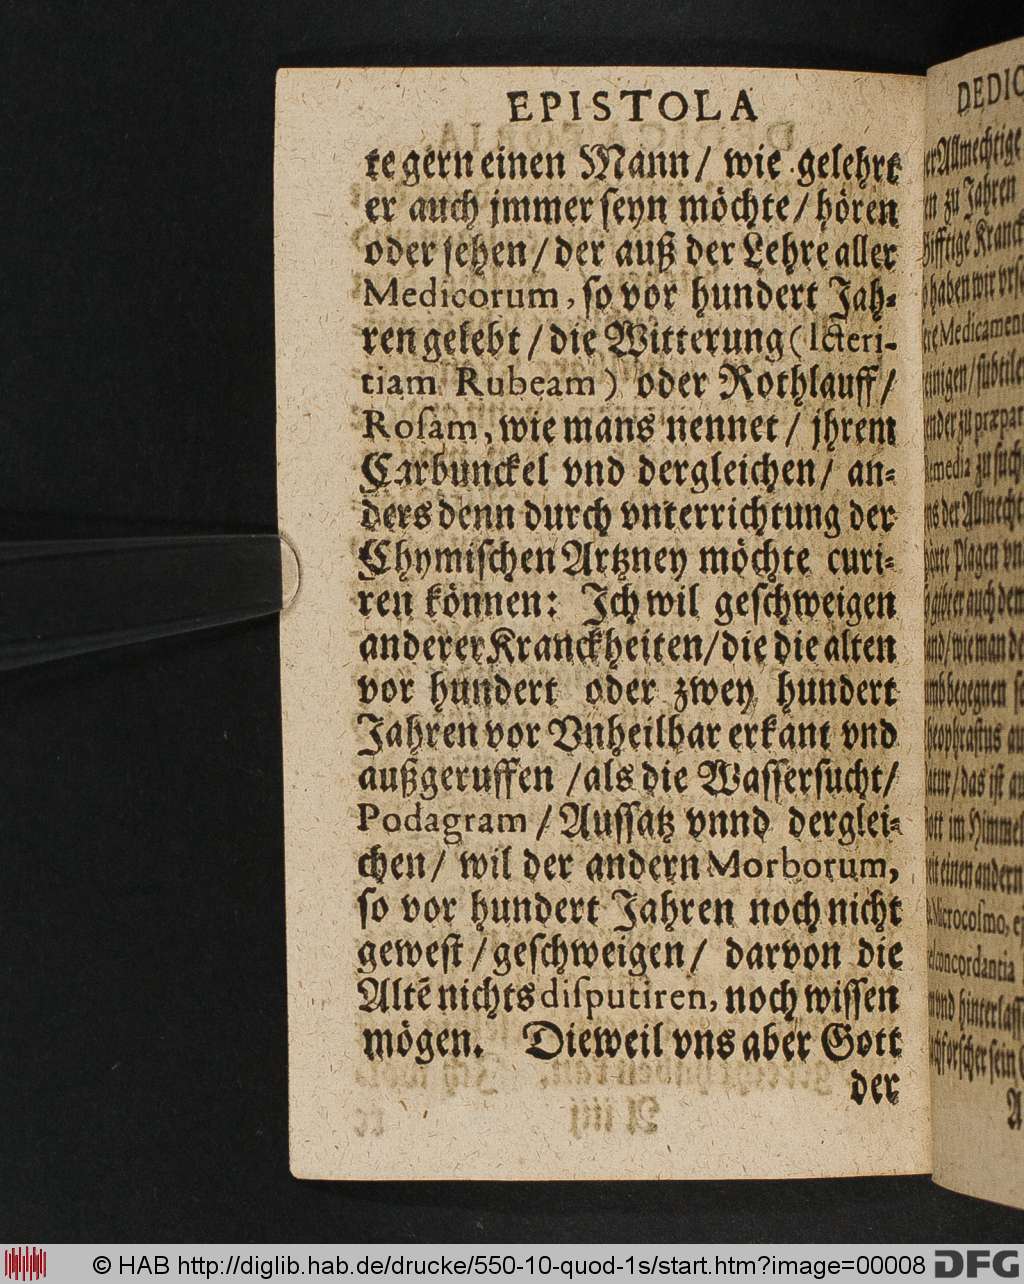 EPISTOLA
te gern einen Mann / wie gelehrt
er auch jmmer seyn möchte / hören
oder sehen / der auß der Lehre aller
Medicorum, so vor hundert Jah-
ren gelebt / die Witterung (Icteri-
tiam Rubeam) oder Rothlauff /
Rosam, wie mans nennet / jhrem
Carbunckel vnd dergleichen / an-
ders denn durch vnterrichtung der
Chymischen Artzney möchte curi-
ren können: Ich wil geschweigen
anderer Kranckheiten / die die alten
vor hundert oder zwey hundert
Jahren vor Vnheilbar erkant vnd
außgeruffen / als die Wassersucht /
Podagram / Aussatz vnnd derglei-
chen / wil der andern Morborum,
so vor hundert Jahren noch nicht
gewest / geschweigen / darvon die
Altẽ nichts disputiren, noch wissen
mögen. Dieweil vns aber Gott
der
DEDIC
Allmechtige
zu Jahren
Gifftige Kranck
haben wir vrs
Medicament
einigen / subtile
zu præpar
zu such
der Allmecht
Plagen vn
auch den
/ wie man de
begegnen
/ das ist
im Himmel
einen andern
Microcosmo,
concordantia
vnd hinterlass
sein
A
© HAB http://diglib.hab.de/drucke/550-10-quod-1s/start.htm?image=00008
DFG